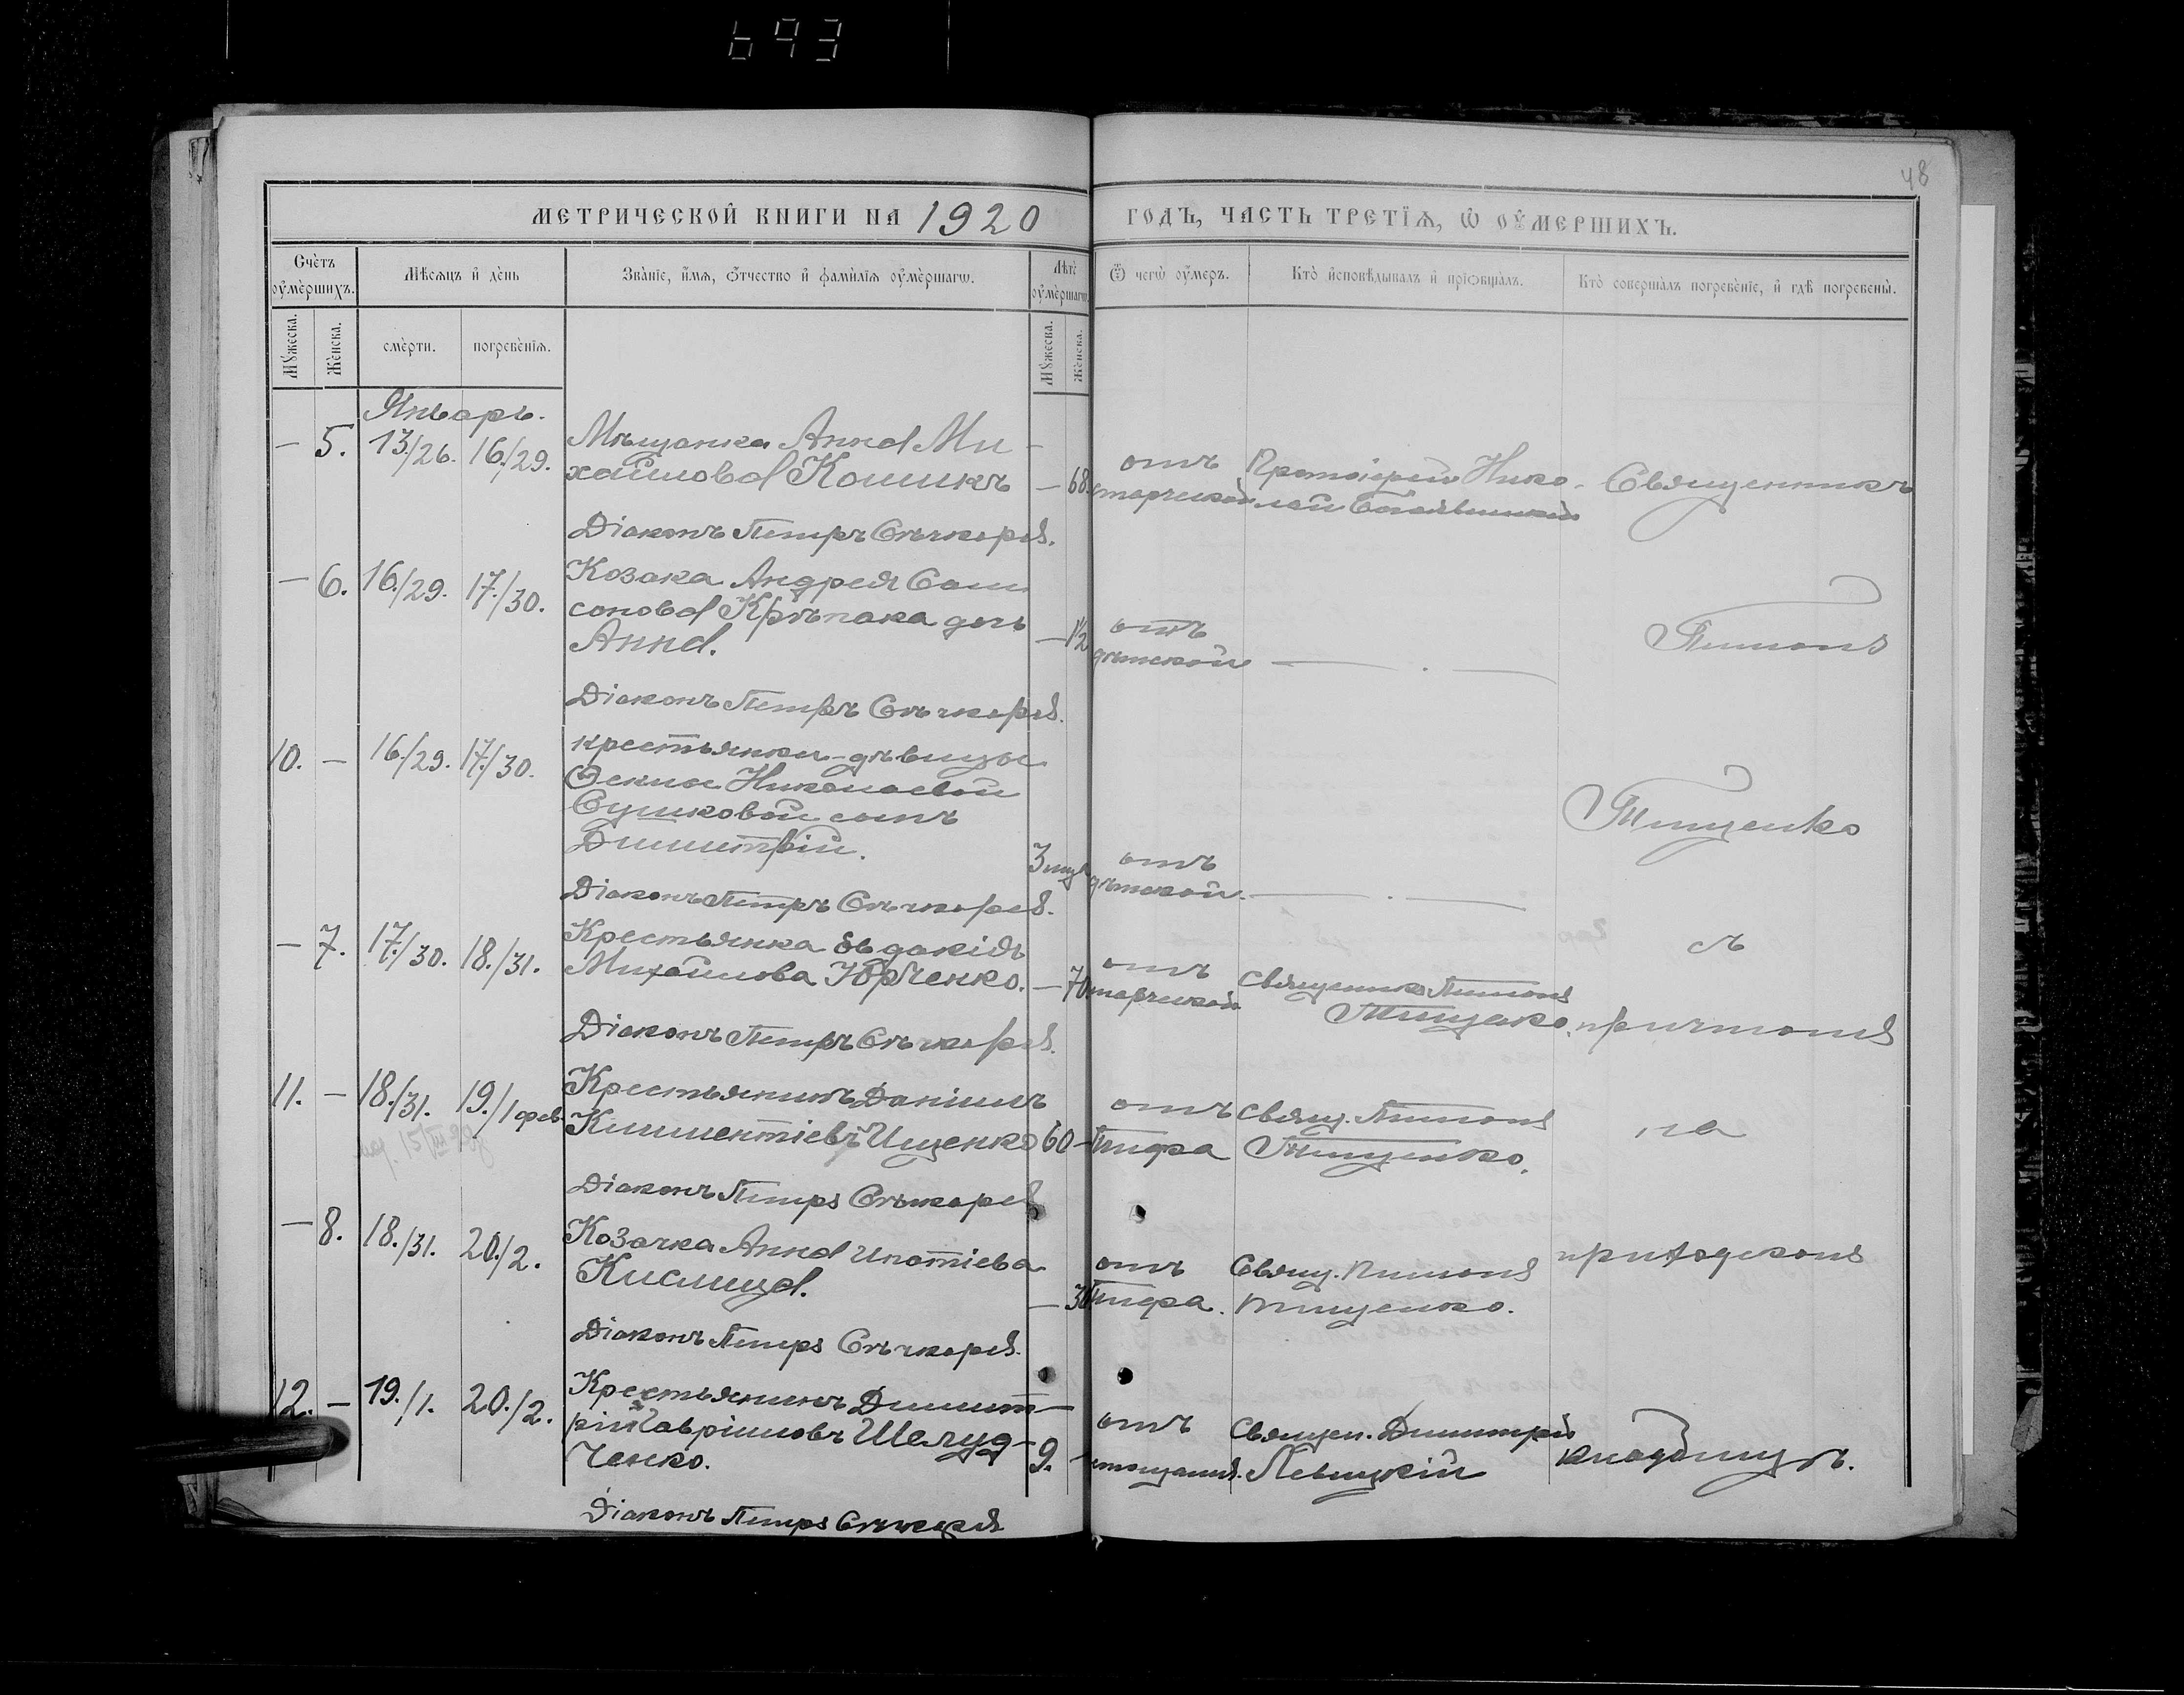 693
48
МЕТРИЧЕСКОЙ КНИГИ НА 1920 ГОДЪ, ЧАСТЬ ТРЕТІѦ, Ѿ ОУМЕРШИХЪ.
Счетъ оумершихъ.
Мѣсѧцъ и день
Званіе, имѧ, отчество и фамиліѧ оумершагѡ.
Лѣта оумершагѡ.
Ѿ чегѡ оумеръ.
Кто исповѣдывалъ и пріѡбщалъ.
Кто совершалъ погребеніе, и гдѣ погребены.
Мужеска.
Женска.
смерти.
погребеніѧ.
Мужеска.
Женска.
Январь.
— 5. 13/26. 16/29. Мѣщанка Анна Ми-
хайлова Кошикъ — 68. отъ старческой Протоіерей Нико-
лай Священникъ
Діаконъ Петръ Сѣчкарев.
— 6. 16/29. 17/30. Козака Андрея Сам
сонова Крѣпака дочь
Анна. — 1½ отъ дѣтской — . — Пимонъ
Діаконъ Петръ Сѣчкарев.
10. — 16/29. 17/30. крестьянки-дѣвицы
Феклы Николаевой
Сушковой сынъ
Димитрій. 3 отъ дѣтской. — . — Тищенко
Діаконъ Петръ Сѣчкарев.
— 7. 17/30. 18/31. Крестьянка Евдокія
Михайлова Юрченко. — 70 отъ старческой Священникъ Пимонъ
Тищенко. съ причтомъ
Діаконъ Петръ Сѣчкарев.
11. — 18/31. 19/1 фев. Крестьянинъ Даніилъ
Климентіевъ Ищенко 60 — отъ тифа Свящ. Пимонъ
Тищенко. на
Діаконъ Петръ Сѣчкарев
— 8. 18/31. 20/2. Козачка Анна Ипатіева
Кислица. — 30 отъ тифа. Свящ. Пимонъ
Тищенко. приходскомъ
Діаконъ Петръ Сѣчкарев.
12. — 19/1. 20/2. Крестьянинъ Димит-
рій Гавріиловъ Шелуд-
ченко. 9. — отъ истощанія. Священ. Димитрій
Левицкій кладбищѣ.
Діаконъ Петръ Сѣчкарев